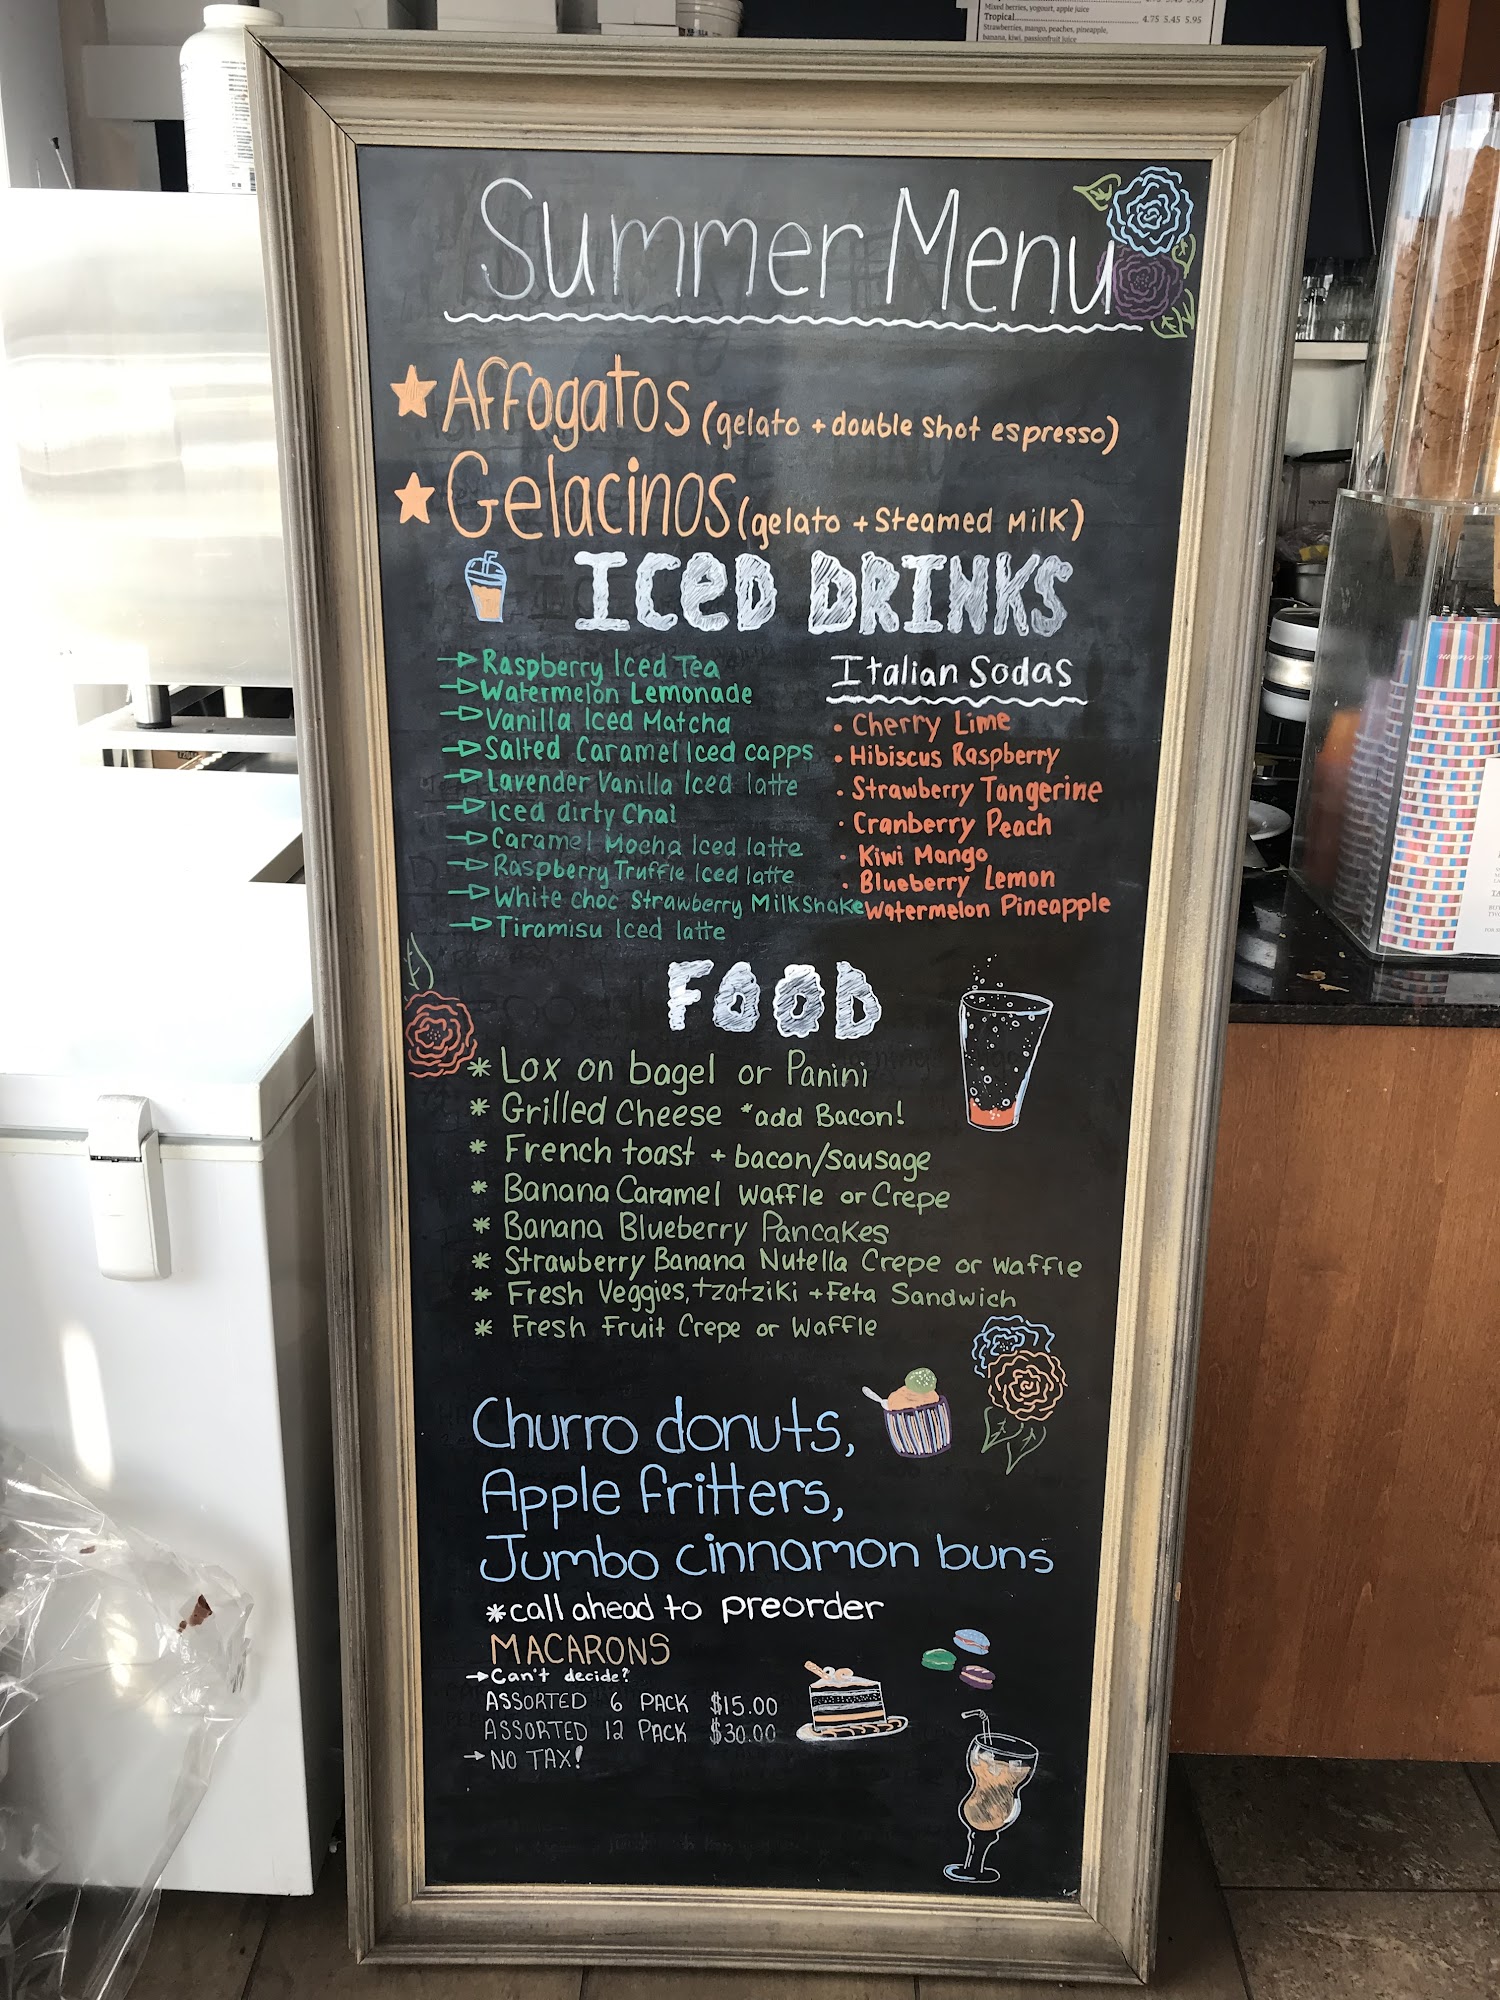 Mixed berries, yogourt, apple juice
Tropical 4.75 5.45 5.95
Strawberries, mango, peaches, pineapple,
banana, kiwi, passionfruit juice
Summer Menu
Affogatos (gelato + double shot espresso)
Gelacinos (gelato + Steamed Milk)
ICED DRINKS
Raspberry Iced Tea
Watermelon Lemonade
Vanilla Iced Matcha
Salted Caramel Iced capps
Lavender Vanilla Iced latte
Iced dirty Chai
Caramel Mocha Iced latte
Raspberry Truffle Iced latte
White choc Strawberry Milkshake
Tiramisu Iced latte
Italian Sodas
• Cherry Lime
• Hibiscus Raspberry
• Strawberry Tangerine
• Cranberry Peach
• Kiwi Mango
• Blueberry Lemon
Watermelon Pineapple
FOOD
* Lox on bagel or Panini
* Grilled Cheese *add Bacon!
* French toast + bacon/sausage
* Banana Caramel Waffle or Crepe
* Banana Blueberry Pancakes
* Strawberry Banana Nutella Crepe or Waffle
* Fresh Veggies, tzatziki + Feta Sandwich
* Fresh Fruit Crepe or Waffle
Churro donuts,
Apple fritters,
Jumbo cinnamon buns
*call ahead to preorder
MACARONS
→ Can't decide?
ASSORTED 6 PACK $15.00
ASSORTED 12 PACK $30.00
→ NO TAX!